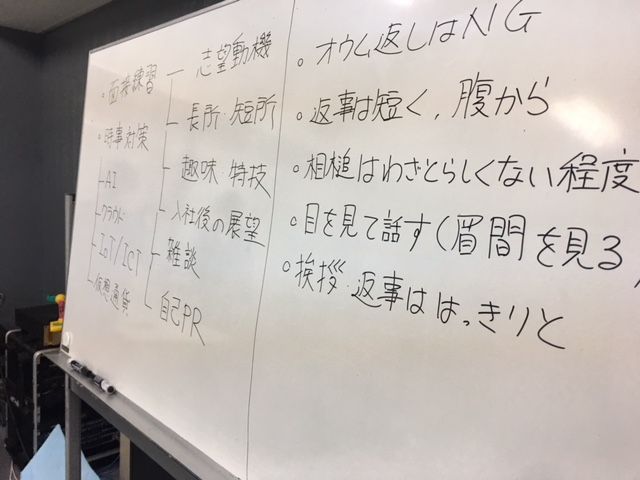 ・面接練習
志望動機
長所・短所
趣味・特技
入社後の展望
雑談
自己PR
・時事対策
AI
クラウド
IoT/ICT
仮想通貨
・オウム返しはNG
・返事は短く、腹から
・相槌はわざとらしくない程度
・目を見て話す(眉間を見る
・挨拶・返事ははっきりと